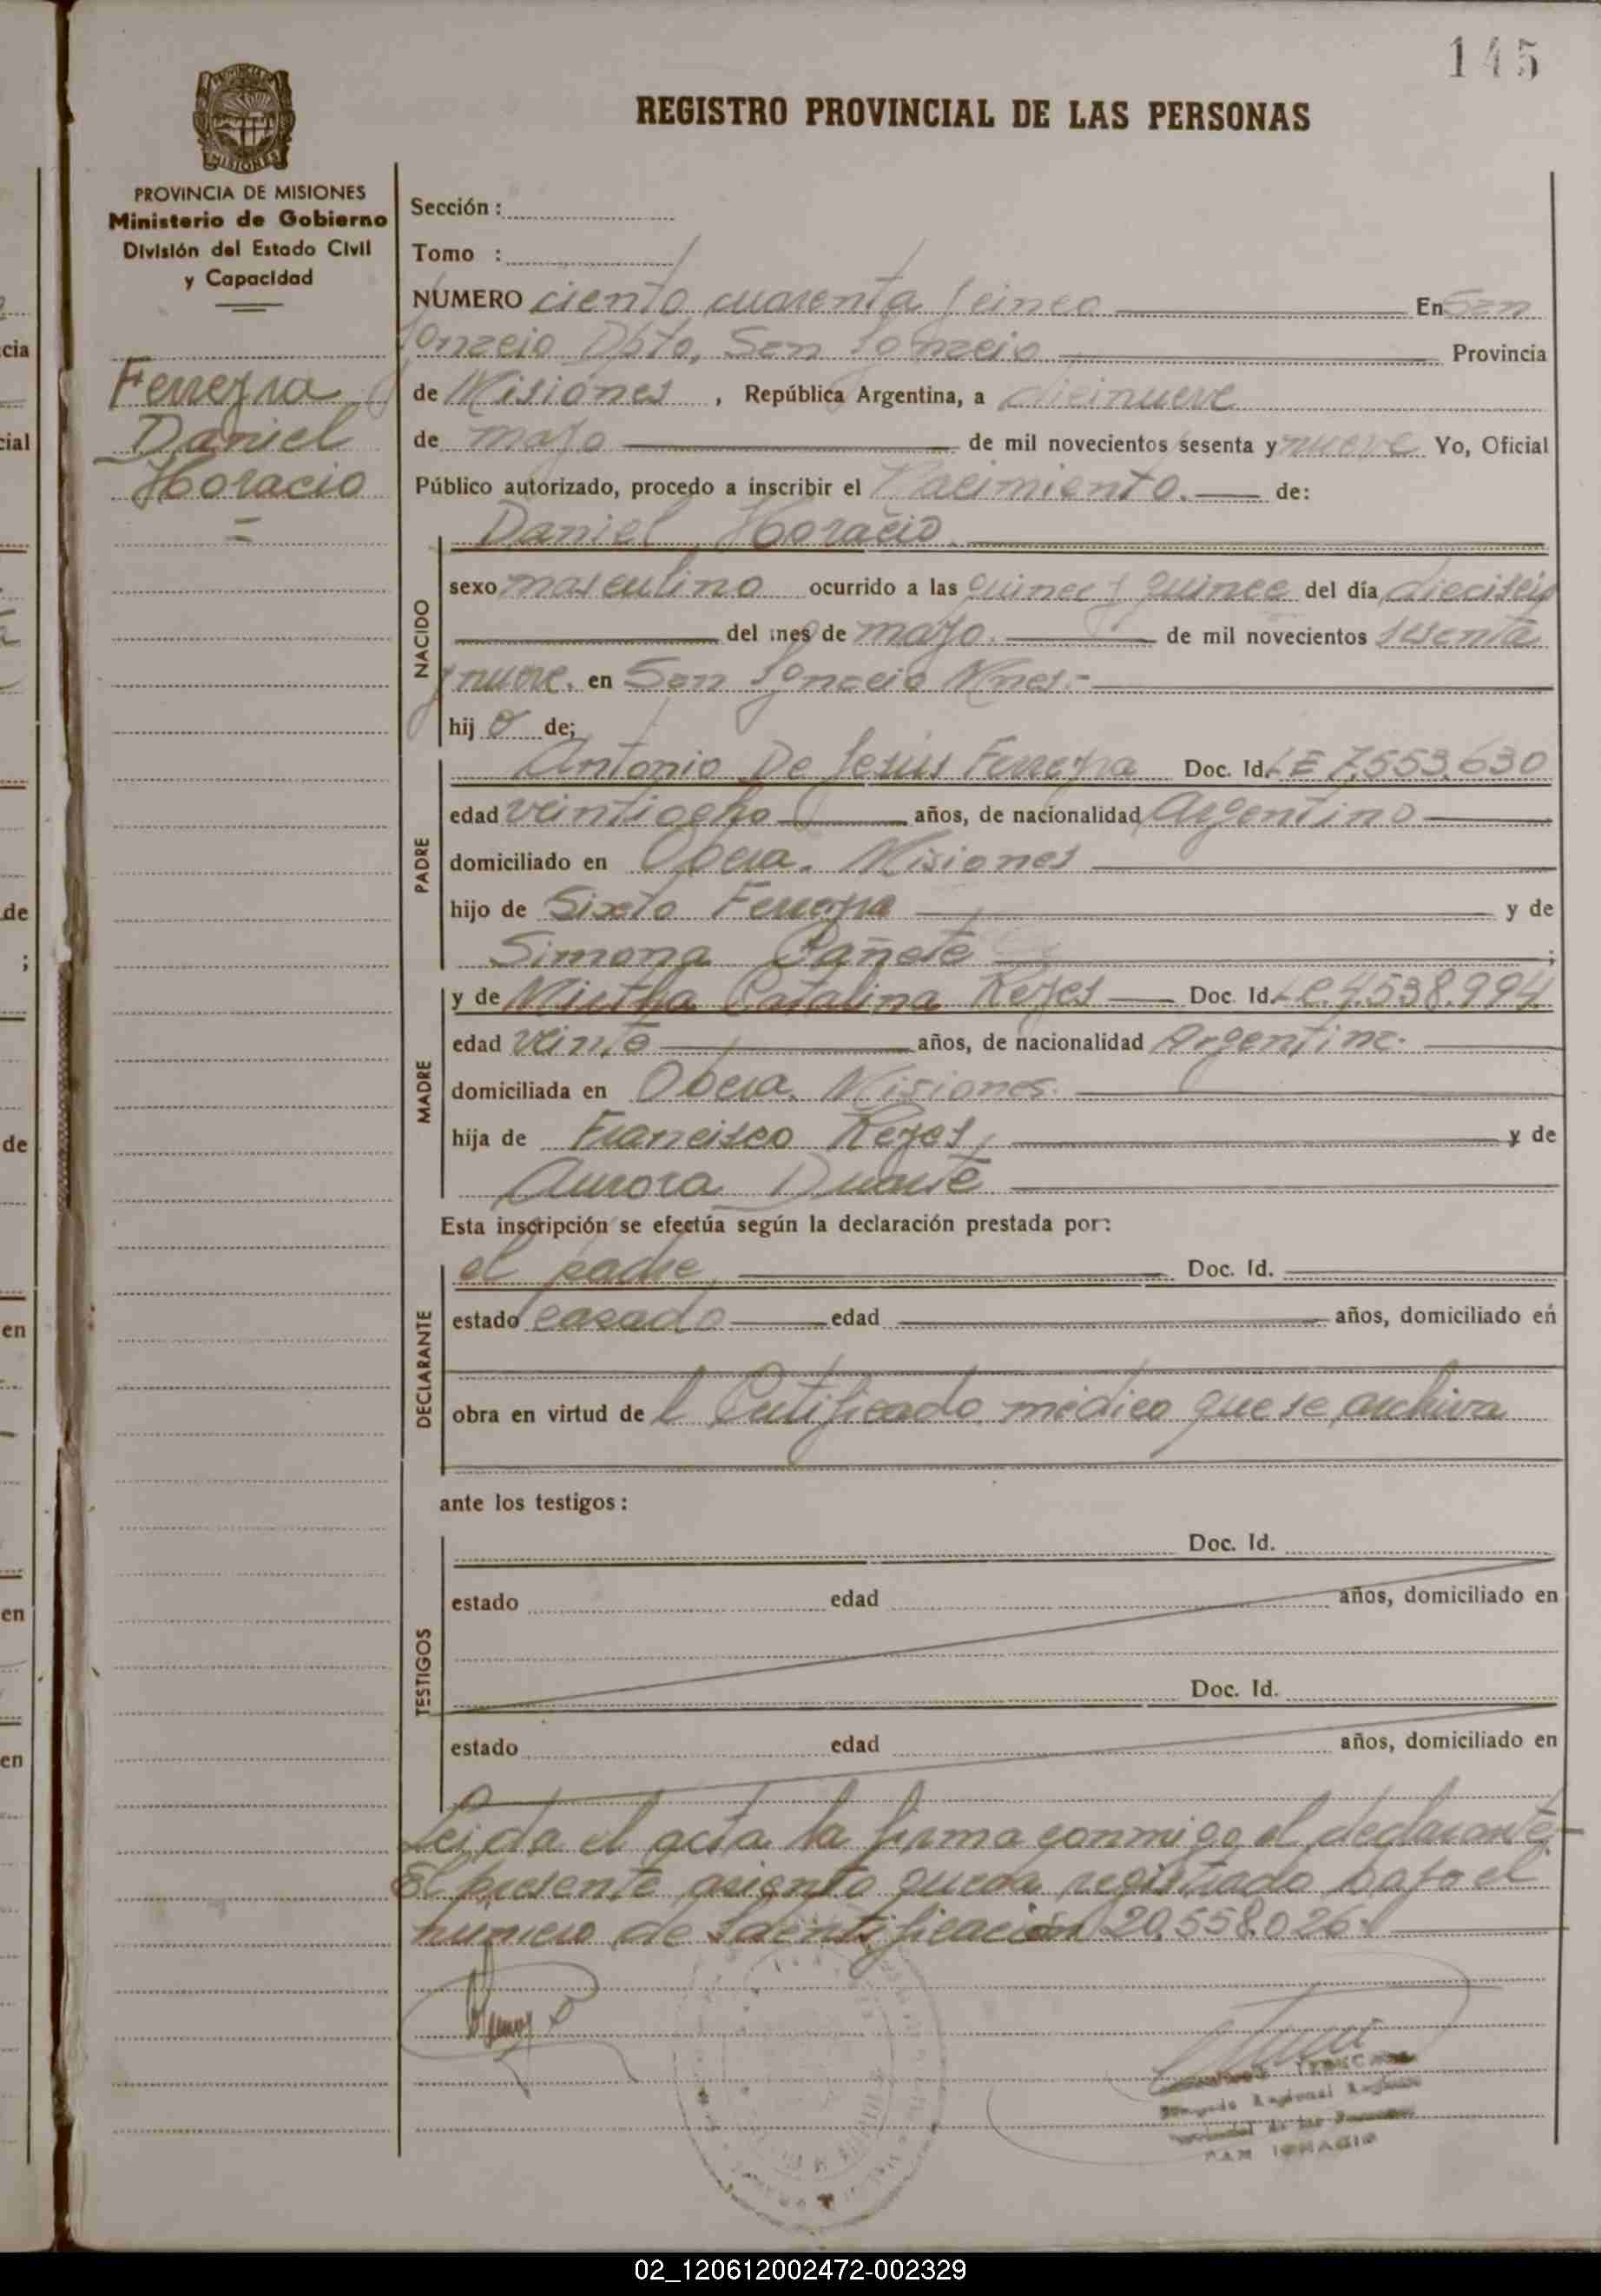 145
REGISTRO PROVINCIAL DE LAS PERSONAS
MISIONES
PROVINCIA DE MISIONES
Ministerio de Gobierno
División del Estado Civil
y Capacidad
Ferreyra
Daniel
Horacio
Sección :
Tomo :
NUMERO ciento cuarenta y cinco En San
Ignacio Dpto, San Ignacio Provincia
de Misiones , República Argentina, a diecinueve
de mayo de mil novecientos sesenta y nueve Yo, Oficial
Público autorizado, procedo a inscribir el Nacimiento. de:
Daniel Horacio.
NACIDO
sexo masculino ocurrido a las quince y quince del día dieciseis
del mes de mayo. de mil novecientos sesenta
y nueve. en San Ignacio Mnes.-
hij o de;
PADRE
Antonio De Jesús Ferreyra Doc. Id. L E 7.553.630
edad veintiocho años, de nacionalidad Argentino
domiciliado en Obera. Misiones
hijo de Sixto Ferreyra y de
Simona Cañete ;
MADRE
y de Mirtha Catalina Reyes Doc. Id. L.C. 4.538.994
edad veinte años, de nacionalidad Argentina.
domiciliada en Obera. Misiones.
hija de Francisco Reyes, y de
Aurora Duarte
Esta inscripción se efectúa según la declaración prestada por:
DECLARANTE
el padre, Doc. Id.
estado casado edad años, domiciliado en
obra en virtud de l Certificado médico que se archiva
ante los testigos :
TESTIGOS
Doc. Id.
estado edad años, domiciliado en
Doc. Id.
estado edad años, domiciliado en
Leida el acta la firma conmigo el declarante.-
El presente asiento queda registrado bajo el
número de Identificación 20.558.026.
SAN IGNACIO
cia
cial
de
;
de
en
en
en
02_120612002472-002329